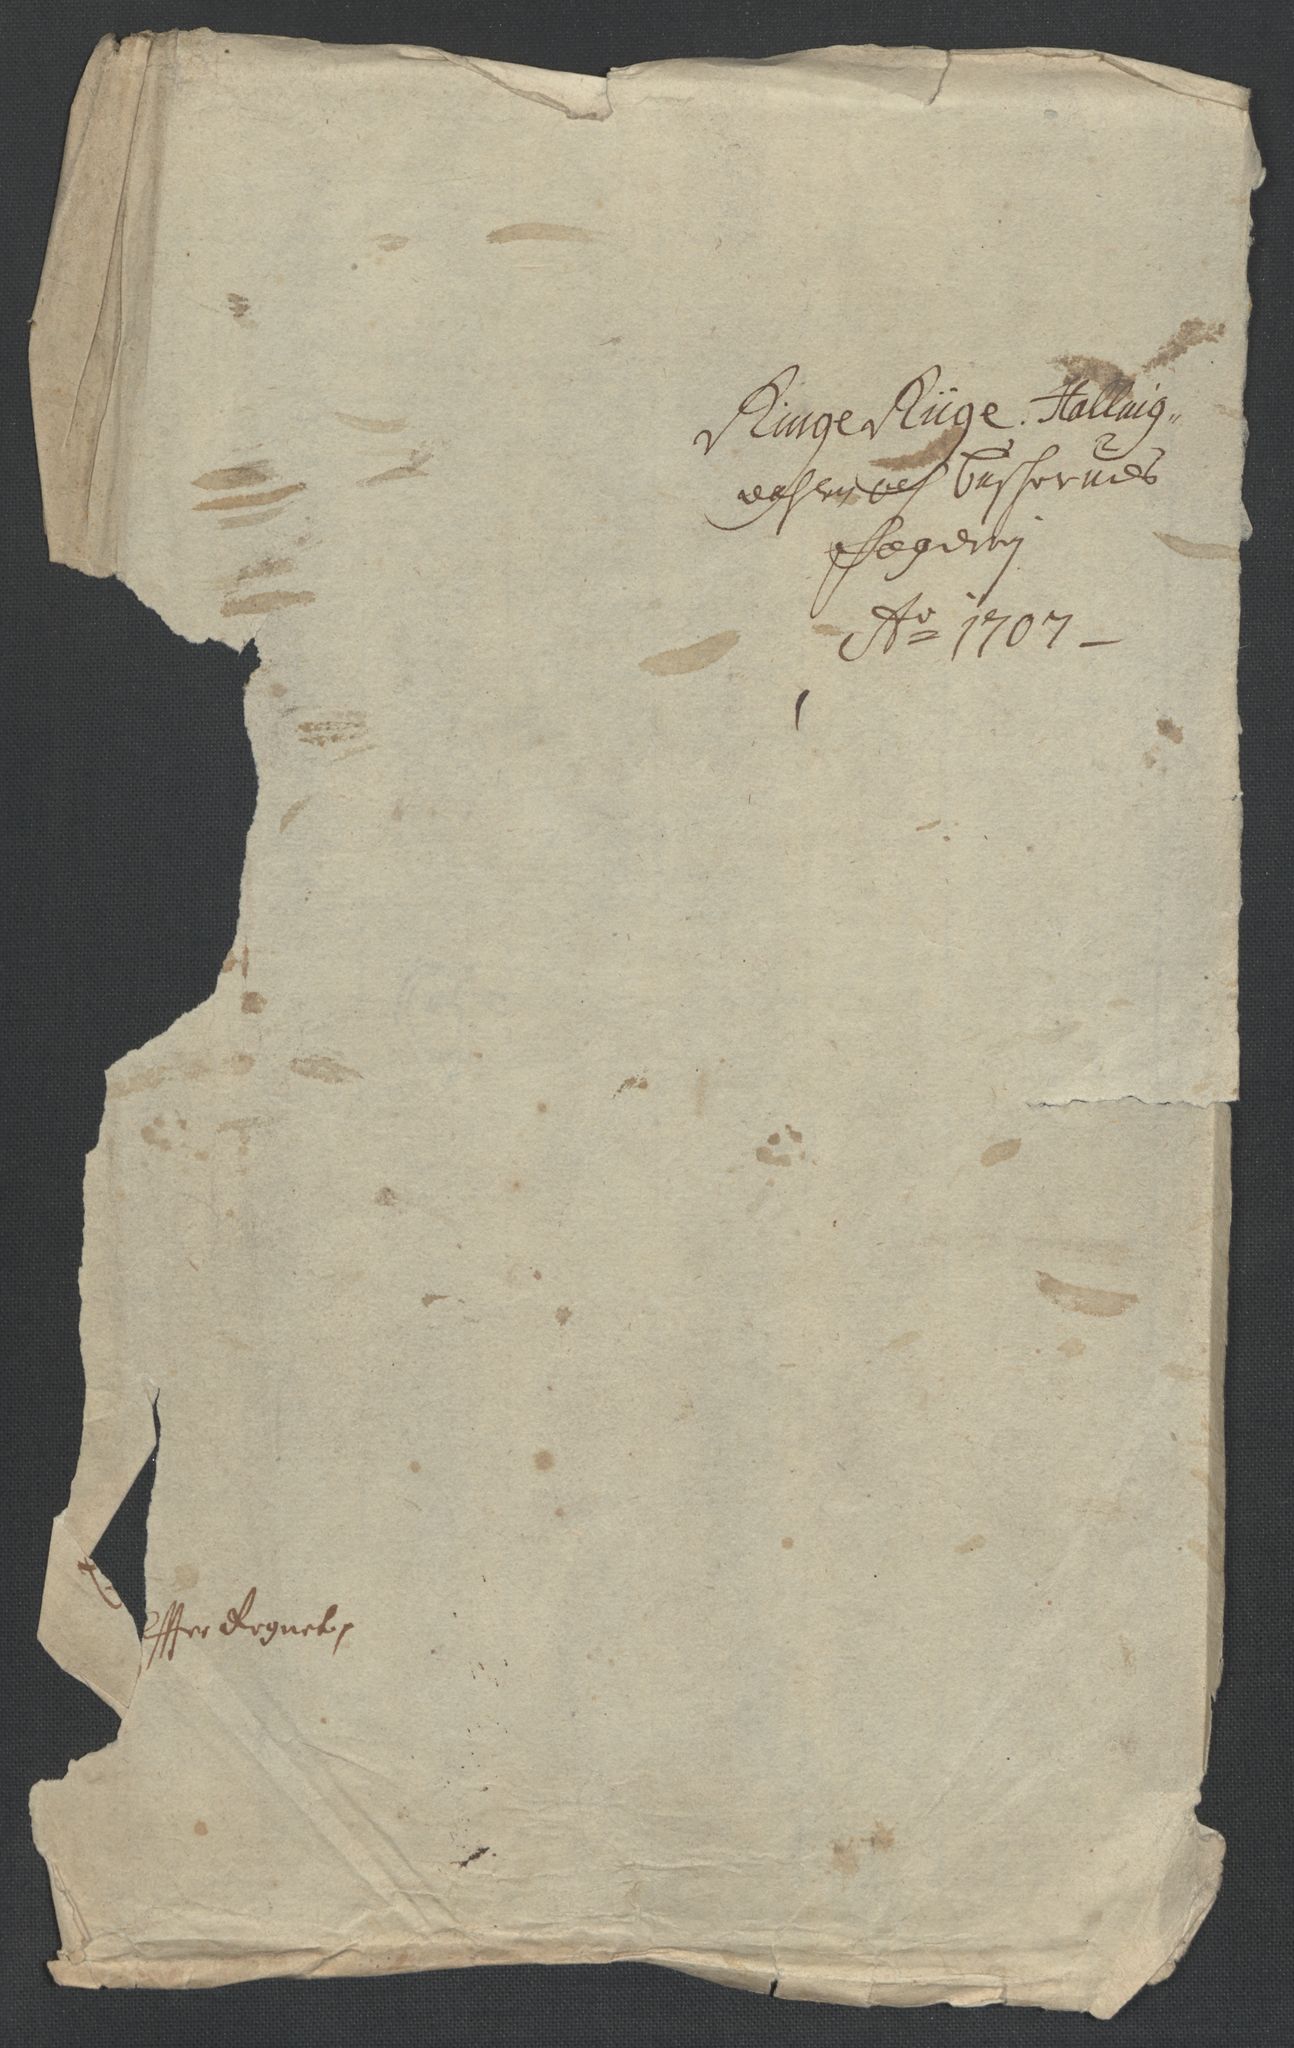 Ringe Riige. Halling„
dahls och Buscheruds
Fogderij
Ao 1707
Effter Regnet